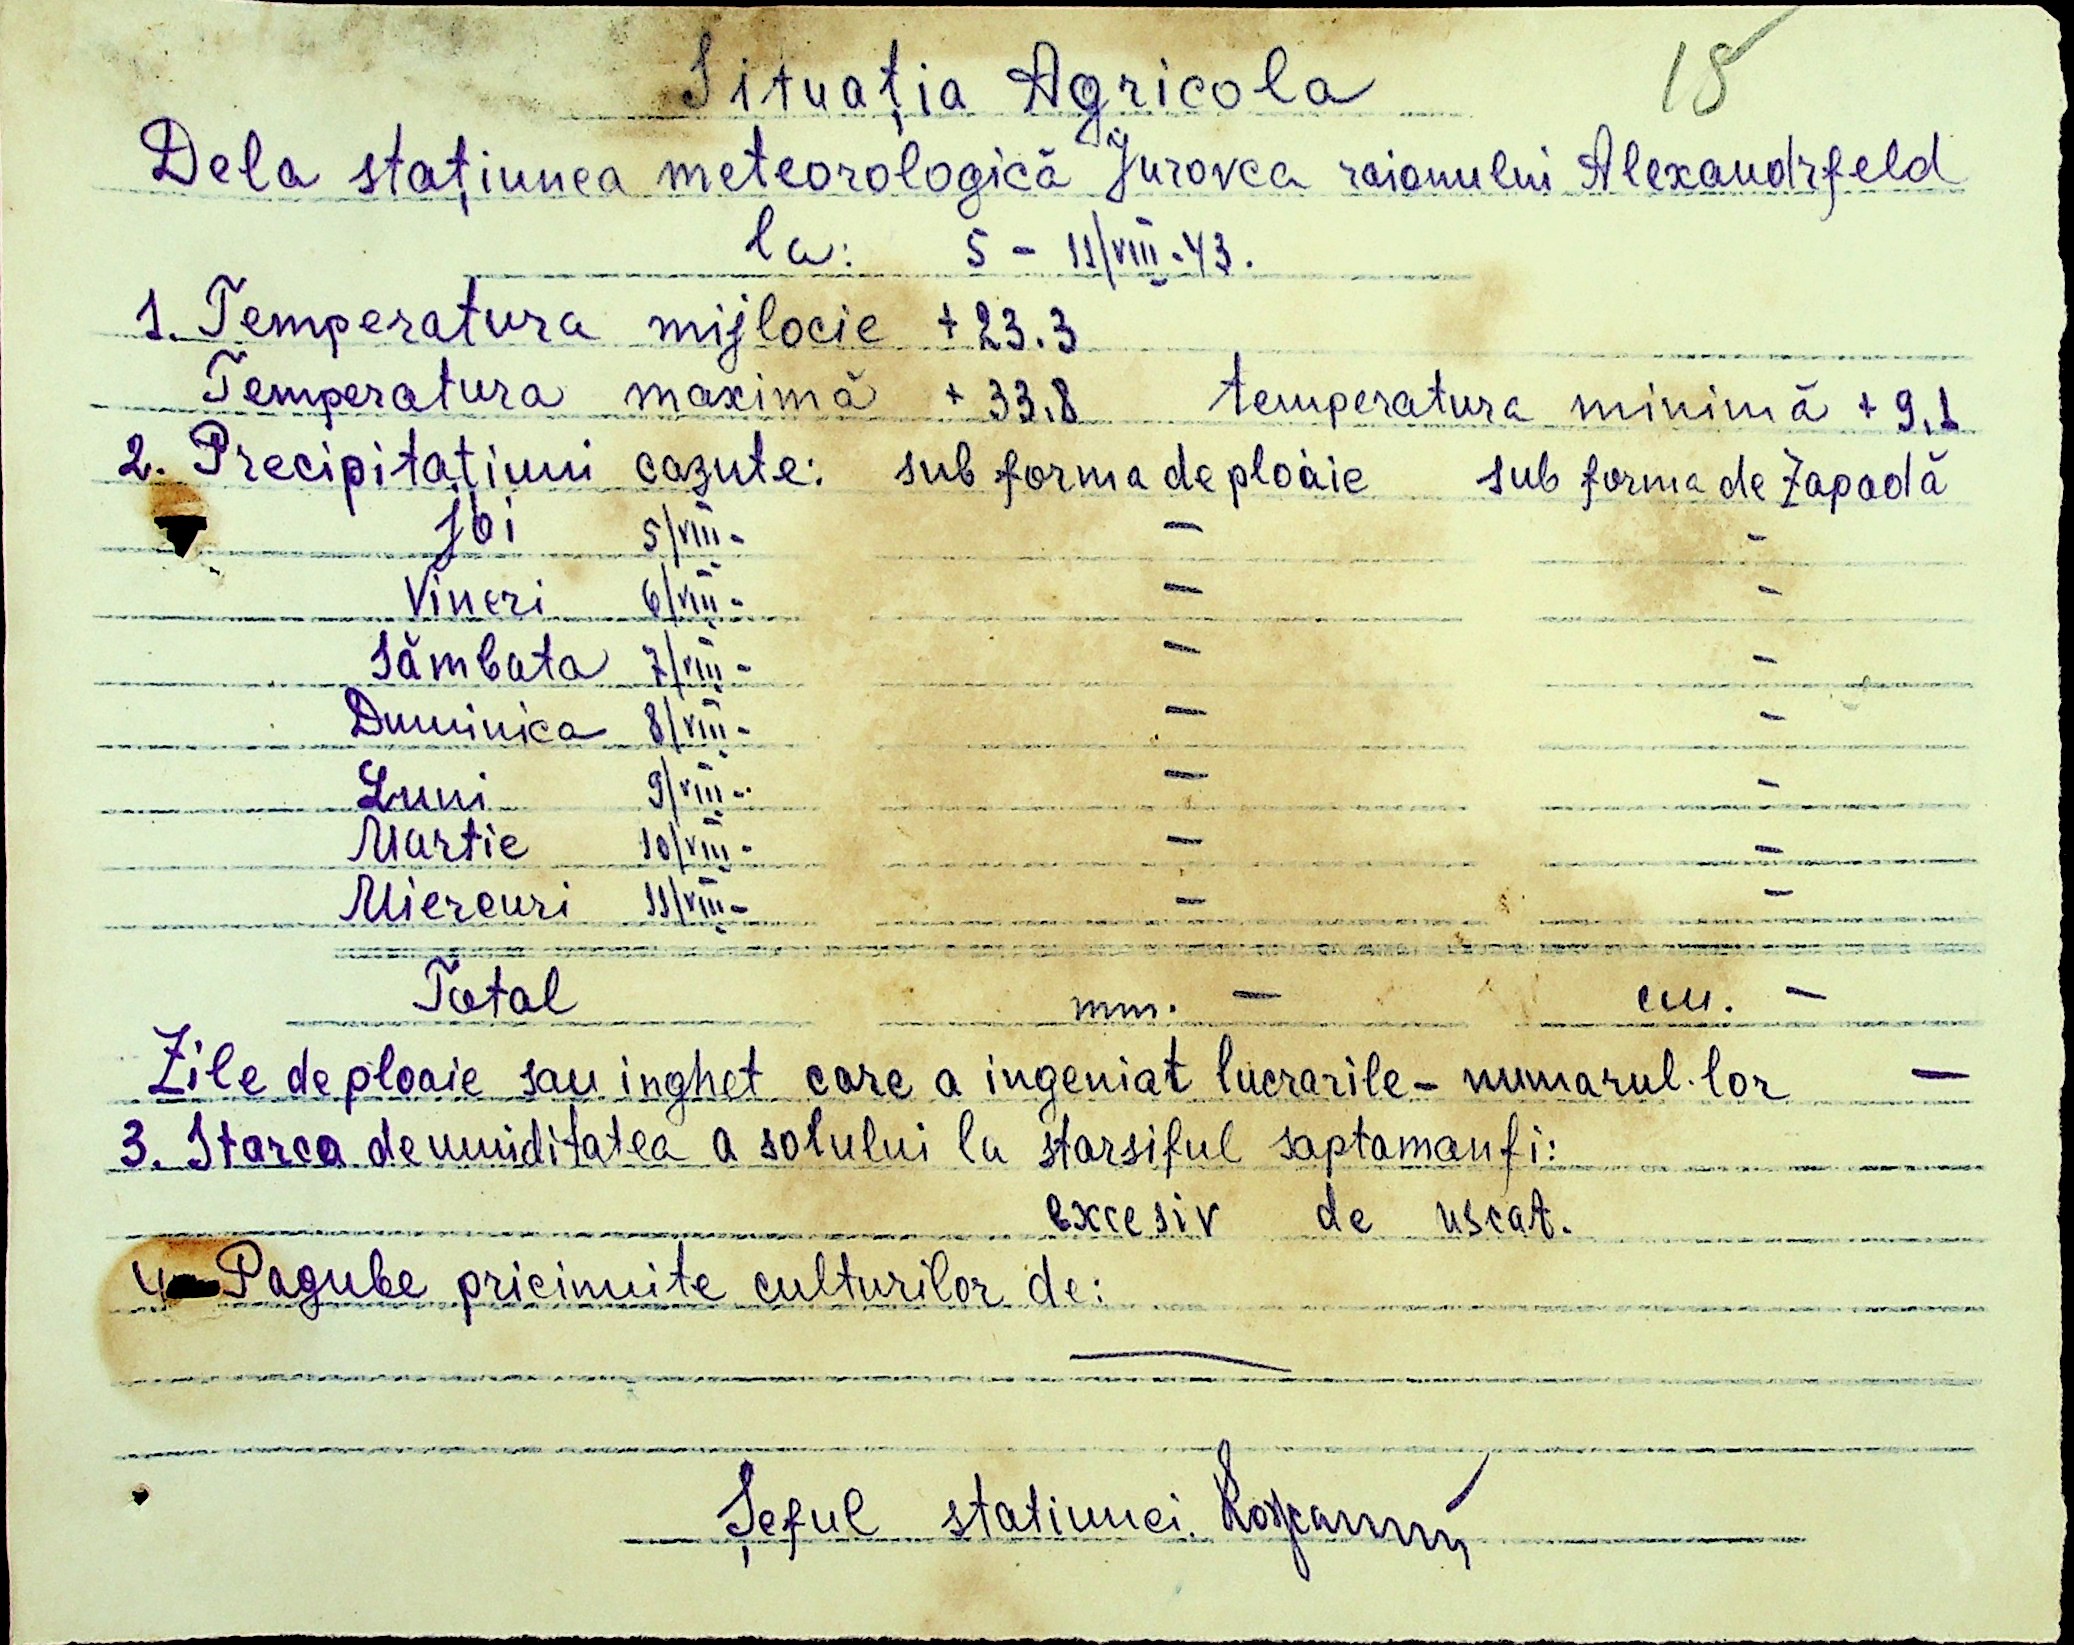 18
Situația Agricola
Dela stațiunea meteorologică Jurovca raionului Alexandrfeld
la: 5 - 11/VIII-43.
1. Temperatura mijlocie +23.3
Temperatura maximă + 33,8 temperatura minimă + 9,1
2. Precipitațiuni cazute: sub forma de ploaie sub forma de Zapadă
Joi 5/VIII- — -
Vineri 6/VIII- — -
Sămbata 7/VIII- — -
Duminica 8/VIII- — -
Luni 9/VIII- — -
Martie 10/VIII- — -
Miercuri 11/VIII- — -
Total mm. — cm. —
Zile de ploaie sau inghet care a ingeniat lucrarile - numarul lor —
3. Starea de umiditatea a solului la starsiful saptamanfi:
excesiv de uscat.
4. Pagube pricinuite culturilor de:
—
Șeful statiunei.